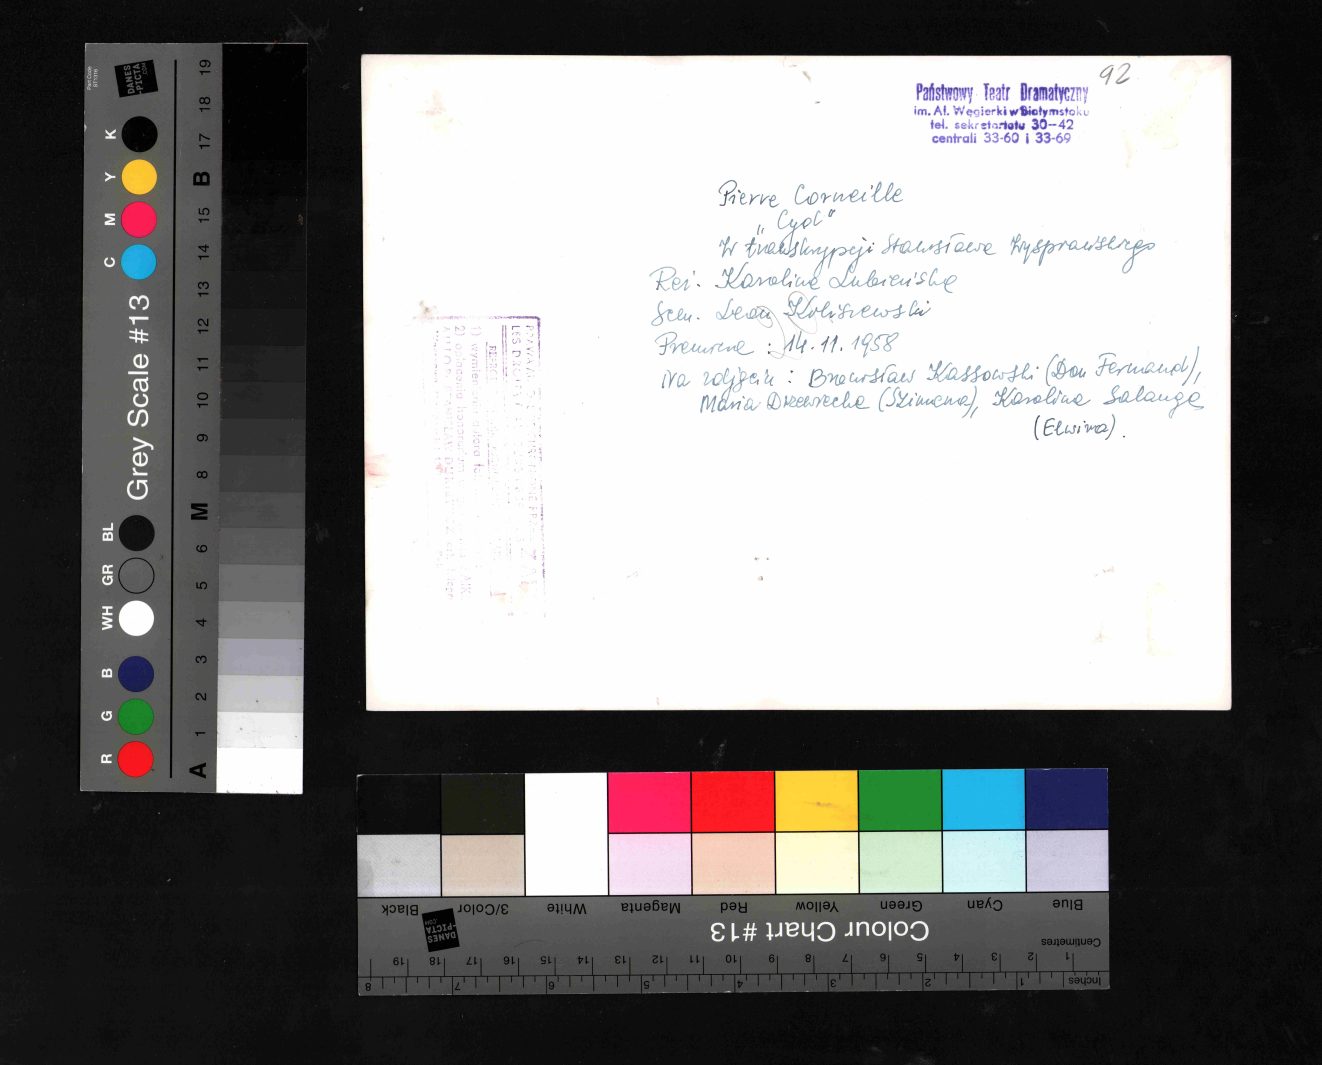 92
Państwowy Teatr Dramatyczny
im. Al. Węgierki w Białymstoku
tel. sekretariatu 30-42
centrali 33-60 i 33-69
Pierre Corneille
„Cyd"
W transkrypcji Stanisława Wyspiańskiego
Reż. Karolina Lubieńska
Scen. Leon Kołiszewski
Premiera : 14.11.1958
Na zdjęciu : Bronisław Kassowski (Don Fernand),
Maria Drzewiecka (Szimena), Karolina Salanga
(Elwira).
1) wymien
2)
Part Code
DANES
-PICTA
.COM
Grey Scale #13
R G B WH GR BL C M Y K
A 1 2 3 4 5 6 M 8 9 10 11 12 13 14 15 B 17 18 19
Black 3/Color White Magenta Red Yellow Green Cyan Blue
DANES
-PICTA
.COM
Colour Chart #13
Centimetres
1 2 3 4 5 6 7 8 9 10 11 12 13 14 15 16 17 18 19
Inches
1 2 3 4 5 6 7 8